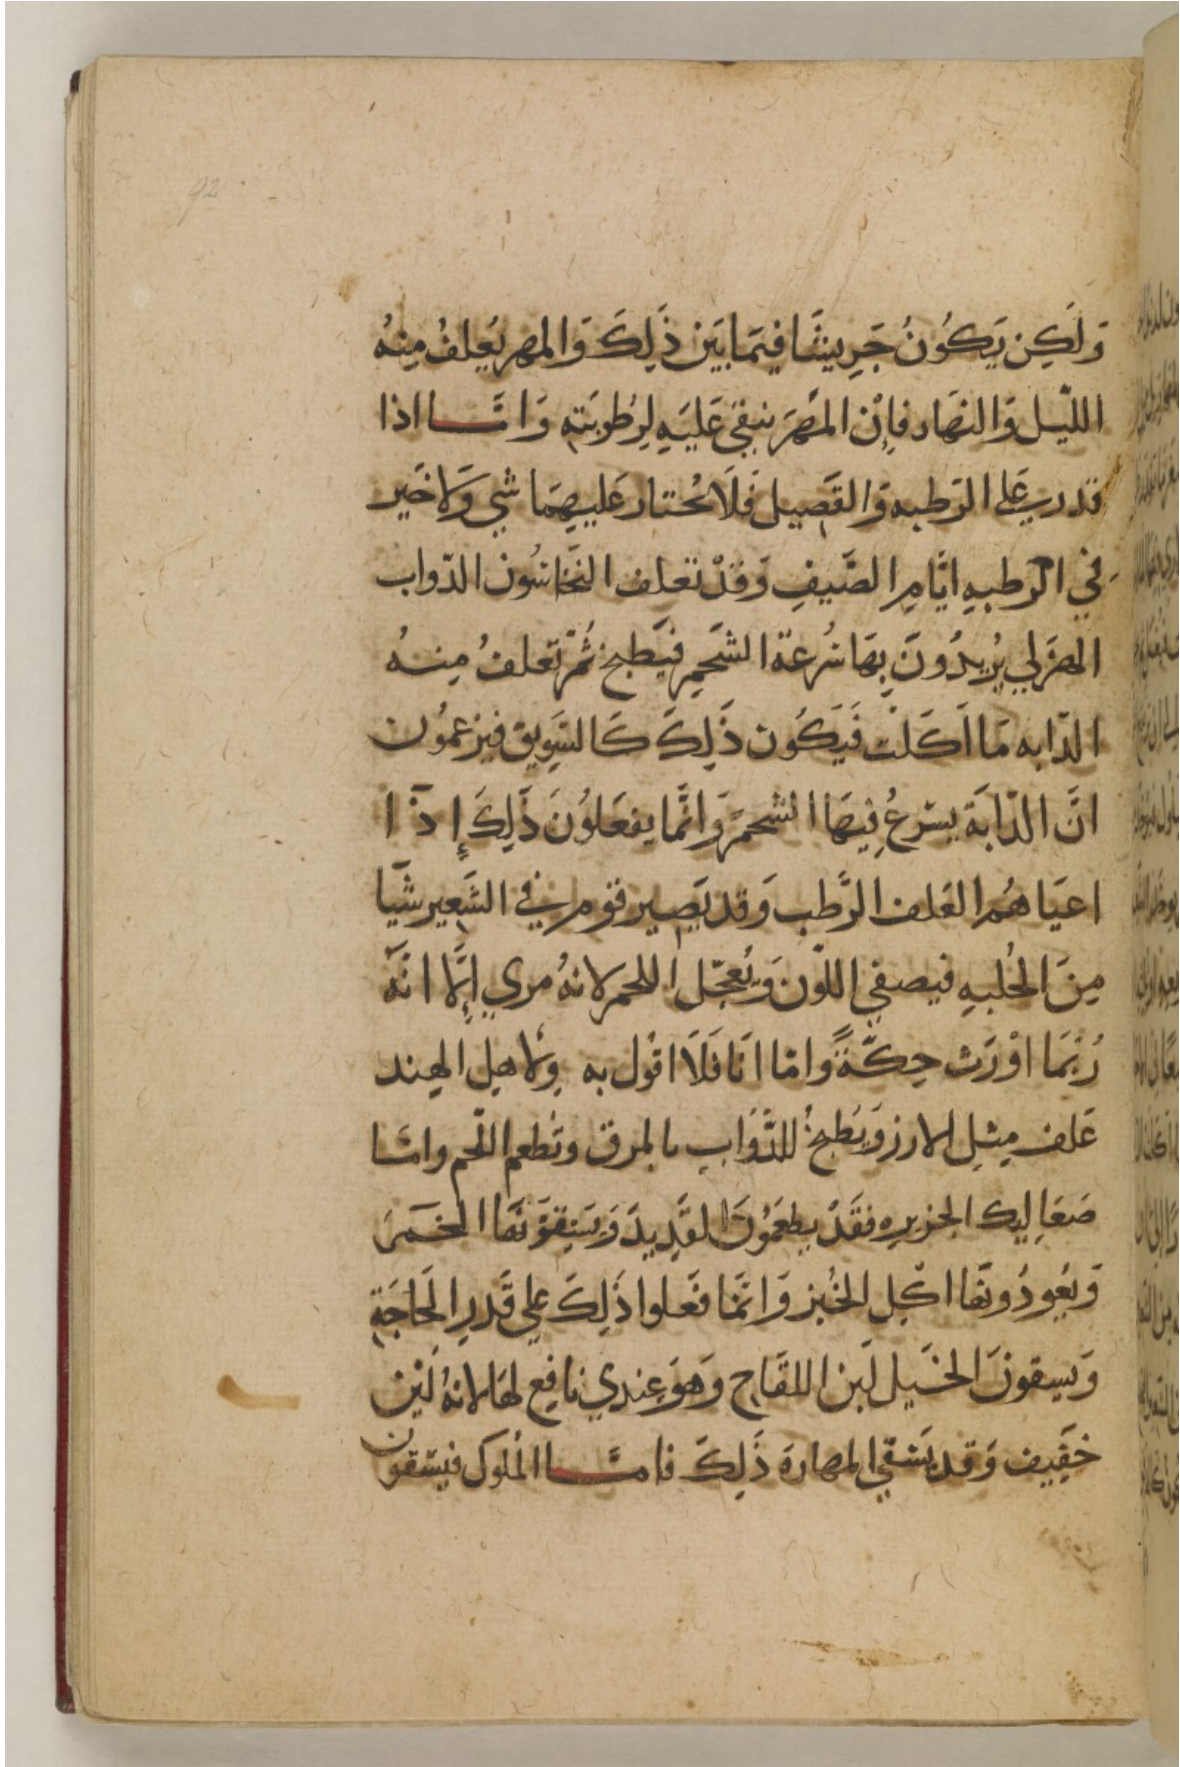 92
وَلَكِن يَكُونُ جَرِيشًا فيمَا بَين ذَلِكَ وَالمهر يَعلفُ مِنهُ
الليّل وَالنهَار فإن المهَرَ يبقي عَليَهِ لِرطوبَته وَامَّا اذا
قدرت عَلي الرّطبه وَالقَصِيل فَلَا تختار عَليهِمَا شي وَلا خَير
في الرّطبهِ ايَّامِ الصَّيفِ وَقدْ تعلف النخاسُون الدّواب
المهزلي يُريدُونَ بِهَا سُرعة الشحَمِ فيَطبخ ثُمَّ تعلفُ مِنهُ
الدّابه مَا اَكَلت فَيَكُون ذَلِكَ كَالسَوِيق فيزعمُون
انَّ الدّابَة يسَرعُ فِيهَا الشحمَ وَانَّما يفعَلوُنَ ذَلِكَ إِذَا
اعيَاهُم العَلف الرَّطب وَقد يَصِير قوم في الشَعِير شيَّا
مِنَ الحُلبهِ فيصفي اللّون وَيُعجّل اللحم لانهُ مري إلَّا انَّهَ
رُبّمَا اوْرَث حِكّةً وامّا انَا فَلَا اقوُل به ولاهل الهِند
عَلف مِثل الارز وَيَطبخُ للدَّوَاب بالمرق وتطعم اللّحم وامَّا
صَعَاليك الجزيره فقَدْ يطعَمُونَهَا القَدِيدَ وَيسَقوُنهَا الخمَرَ
وَيعُودُونهَا اكْل الخُبز وَانمّا فَعَلوا ذَلِكَ علي قَدرِ الحَاجَةِ
وَيسقونَ الخَيل لَبن اللقَاح وَهوَ عِندي نافِع لهَا لانهُ لَبَن
خَفِيف وَقد يَسْقي المهارَة ذَلِكَ فامَّا الملُوك فيسَقون